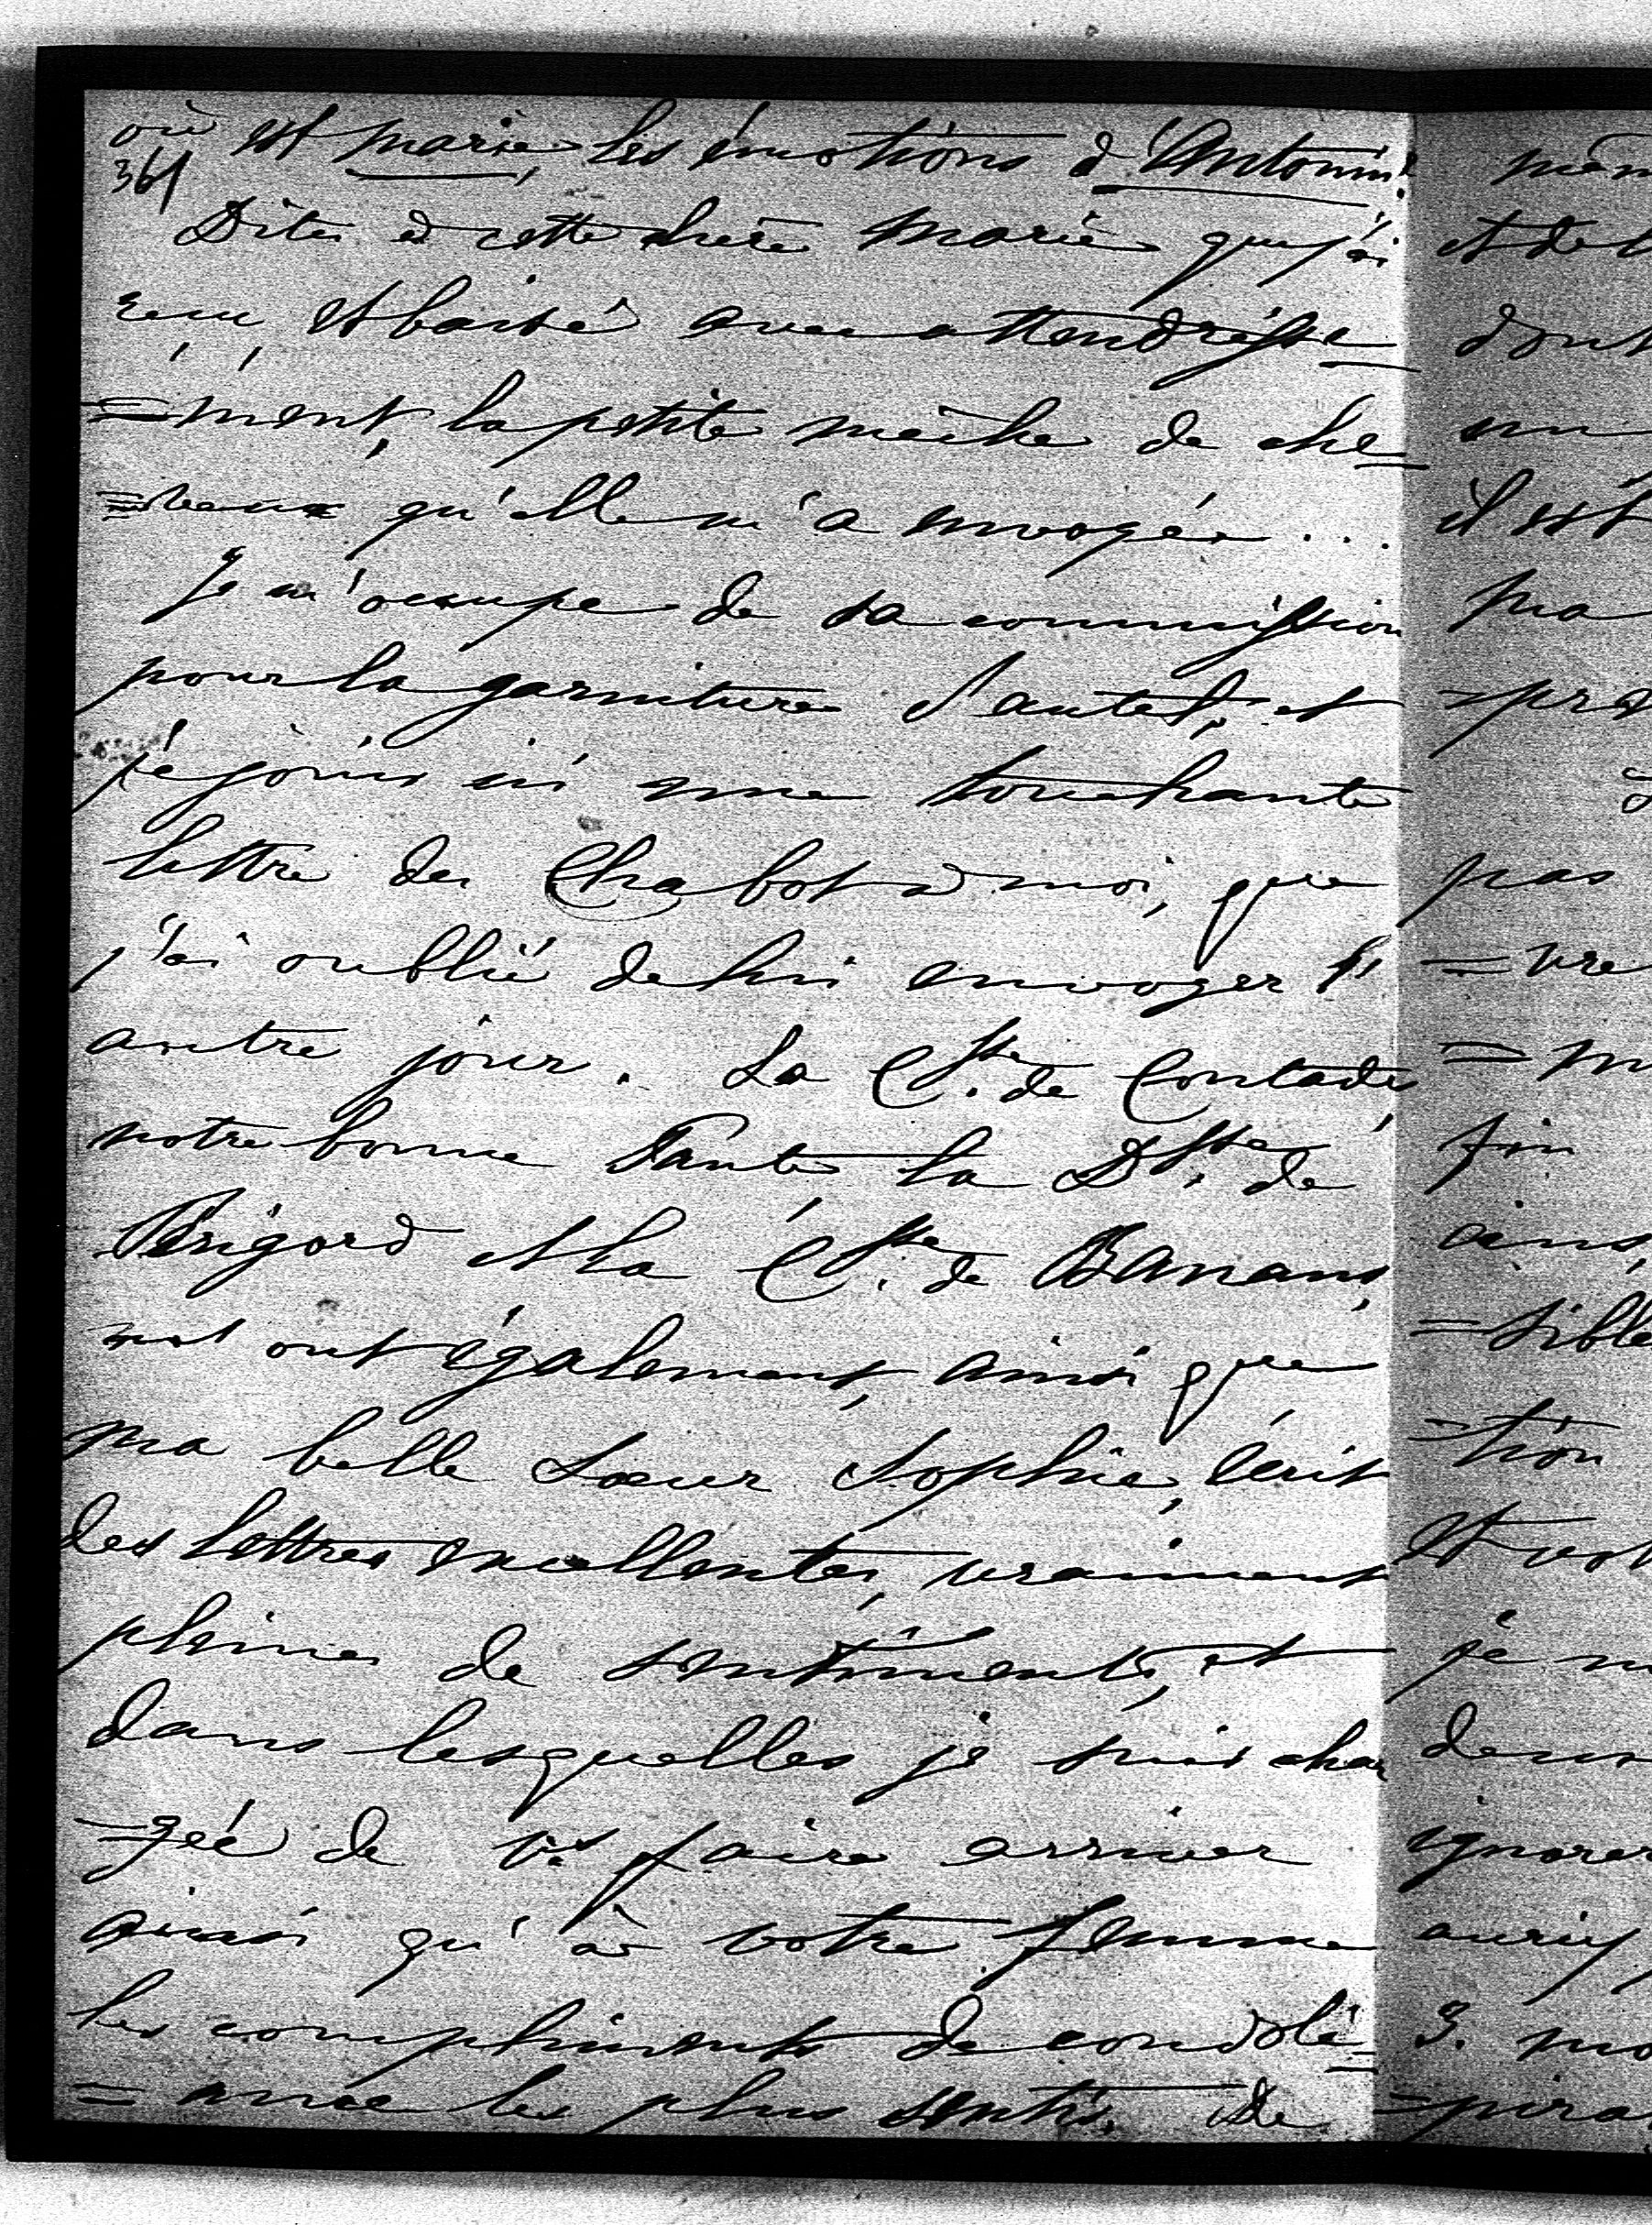 où est Marie, les émotions d'Antonin!
361
Dites à cette chère Marie que j'ai
reçu, et baisé avec attendrisse
=ment, la petite mèche de che
=veux qu'elle m'a envoyée...
Je m'occupe de sa commission
pour la garniture d'autel, et
je joins ici une touchante
lettre de Chabot à moi, que
j'ai oublié de lui envoyer l'
autre jour. La Ctsse de Contades,
notre bonne Tante la Dsse de
Périgord et la Ctsse de Banans,
m'ont également, ainsi que
ma belle Soeur Sophie, écrit
des lettres excellentes, vraiment
pleines de sentiments, et
dans lesquelles je suis char
=gée de vs faire arriver
ainsi qu'à votre femme
les compliments de condolé=
=ance les plus sentis. De
mêm
et de
dont
un
il est
ma
=pro
pas
=vre
=m
fin
ains
=sible
=tion
et vot
je n
deux
ignorer
auriez
3. mo
=pira